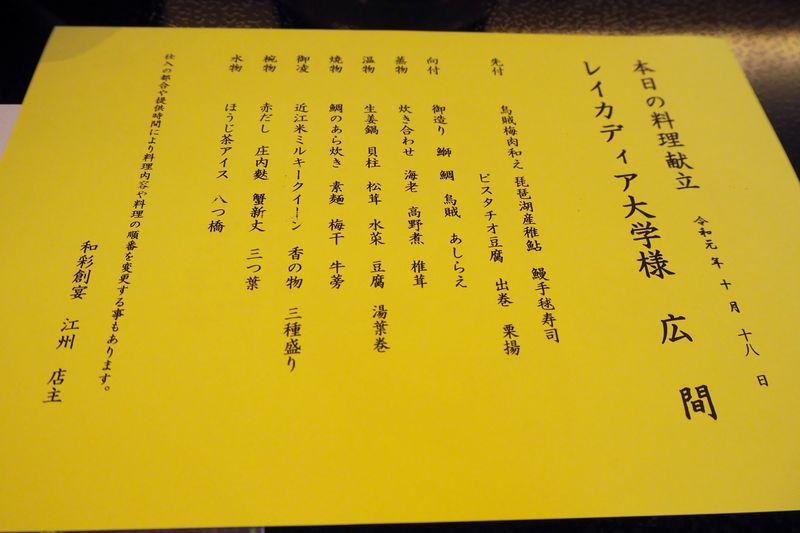 本日の料理献立
令和元年十月十八日
レイカディア大学様 広間
先付 烏賊梅肉和え 琵琶湖産稚鮎 鰻手毬寿司
ピスタチオ豆腐 出巻 栗揚
向付 御造り 鰤 鯛 烏賊 あしらえ
蒸物 炊き合わせ 海老 高野煮 椎茸
温物 生姜鍋 貝柱 松茸 水菜 豆腐 湯葉巻
焼物 鯛のあら炊き 素麺 梅干 牛蒡
御凌 近江米ミルキークイーン 香の物 三種盛り
椀物 赤だし 庄内麩 蟹新丈 三つ葉
水物 ほうじ茶アイス 八つ橋
仕入の都合や提供時間により料理内容や料理の順番を変更する事もあります。
和彩創宴 江州 店主